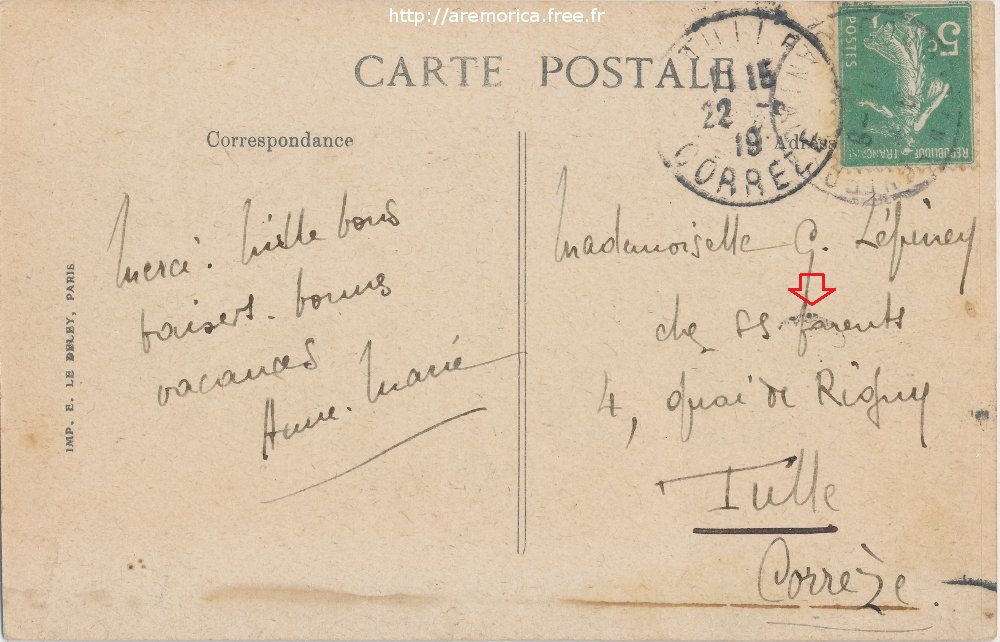 http://aremorica.free.fr
CARTE POSTALE
Correspondance
Adress
5c
POSTES
REPUBLIQUE FRANÇAISE
TULLE
11 15
22 -
19
CORREZE
Merci. Mille bons
baisers. bonnes
vacances
Anne. Marie
Mademoiselle G. Lépiney
chez ss parents
4, quai de Rigny
Tulle
Corrèze.
IMP. E. LE DELEY, PARIS